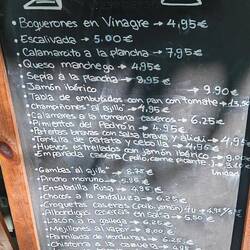 • Boquerones en Vinagre → 4,95€
• Escalivada → 5.00€
• Calamarcito a la plancha → 7,95€
• Queso manchego → 4,95€
• Sepia a la plancha → 9,95€
• Jamón ibérico → 9.90€
• Tabla de embutidos con pan con tomate →
• Champiñones al ajillo → 4,95€
• Calamares a la romana caseros → 6.25€
• Pimientos del Padrón → 4.95€
• Patatas bravas con salsa brava y alioli → 4,95€
• Tortilla de patatas y cebolla → 4,95€
• Huevos estrellados con jamón ibérico → 9.00€
• Empanada casera (pollo, carne picante)
• Gambas al ajillo → 8.75€
• Pincho moruno → 5,95€
• Ensaladilla Rusa → 4.95€
• Chocos a la andaluza → 6.25€
• Croquetas Caseras (Pollo, jamón)
• Albóndigas caseras en Salsa → 5.50€
• Lacón a la gallega → 6.25€
• Mejillones al vapor → 8.00€
• Pulpo a la gallega
• Chistorra a la